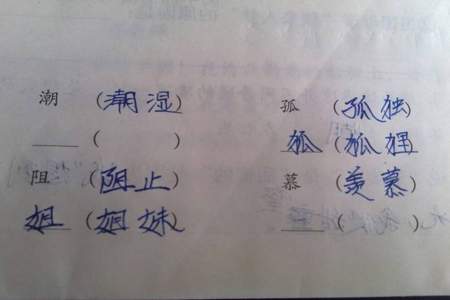 潮 (潮湿) 孤 (孤独)
___ ( ) 狐 (狐狸)
阻 (阻止) 慕 (羡慕)
姐 (姐妹) ___ ( )